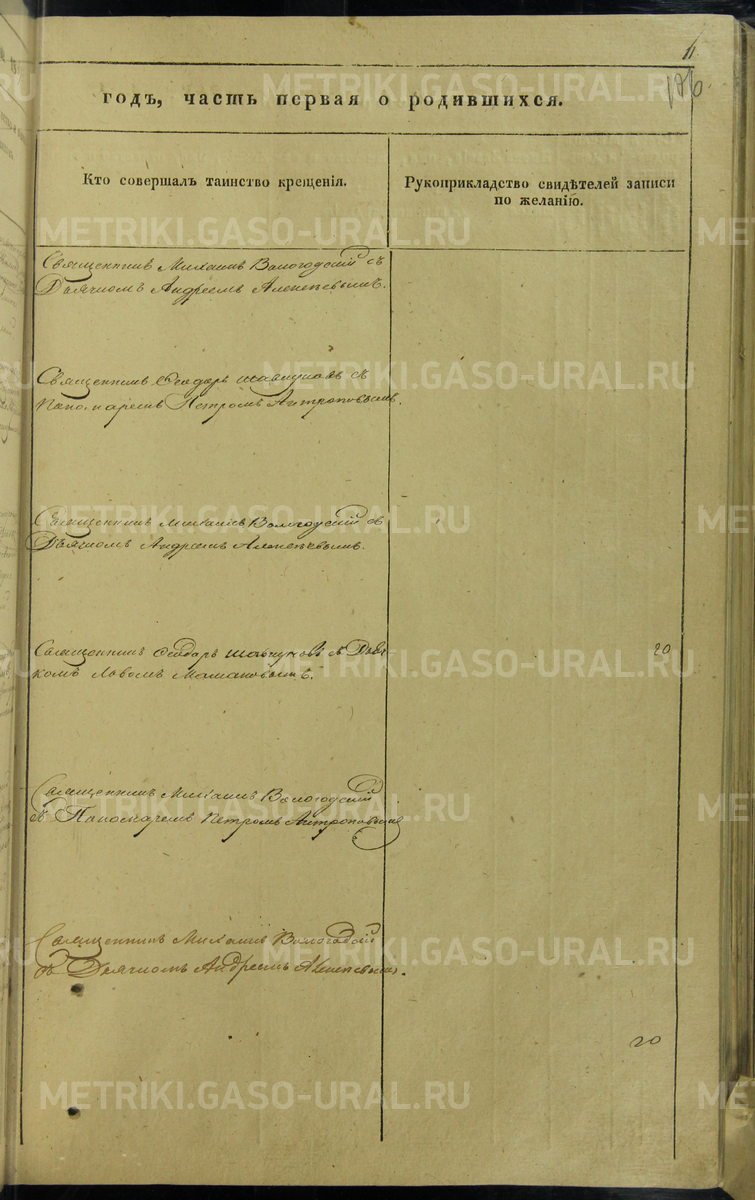 11.
186.
годъ, часть первая о родившихся.
Кто совершалъ таинство крещенія.
Рукоприкладство свидѣтелей записи
по желанію.
Священникъ Михаилъ Вологодскій съ
Дьячкомъ Андреемъ Алексѣевымъ.
Священникъ Ѳеодоръ Шавкуновъ съ
Пономаремъ Петромъ Антроповымъ.
Священникъ Михаилъ Вологодскій съ
Дьячкомъ Андреемъ Алексѣевымъ.
Священникъ Ѳеодоръ Шавкуновъ съ Дьяч
комъ
20
Священникъ Михаилъ Вологодскій
съ Пономаремъ Петромъ Антроповымъ
Священникъ Михаилъ Вологодскій
съ Дьячкомъ Андреемъ Алексѣевымъ.
20
METRIKI.GASO-URAL.RU